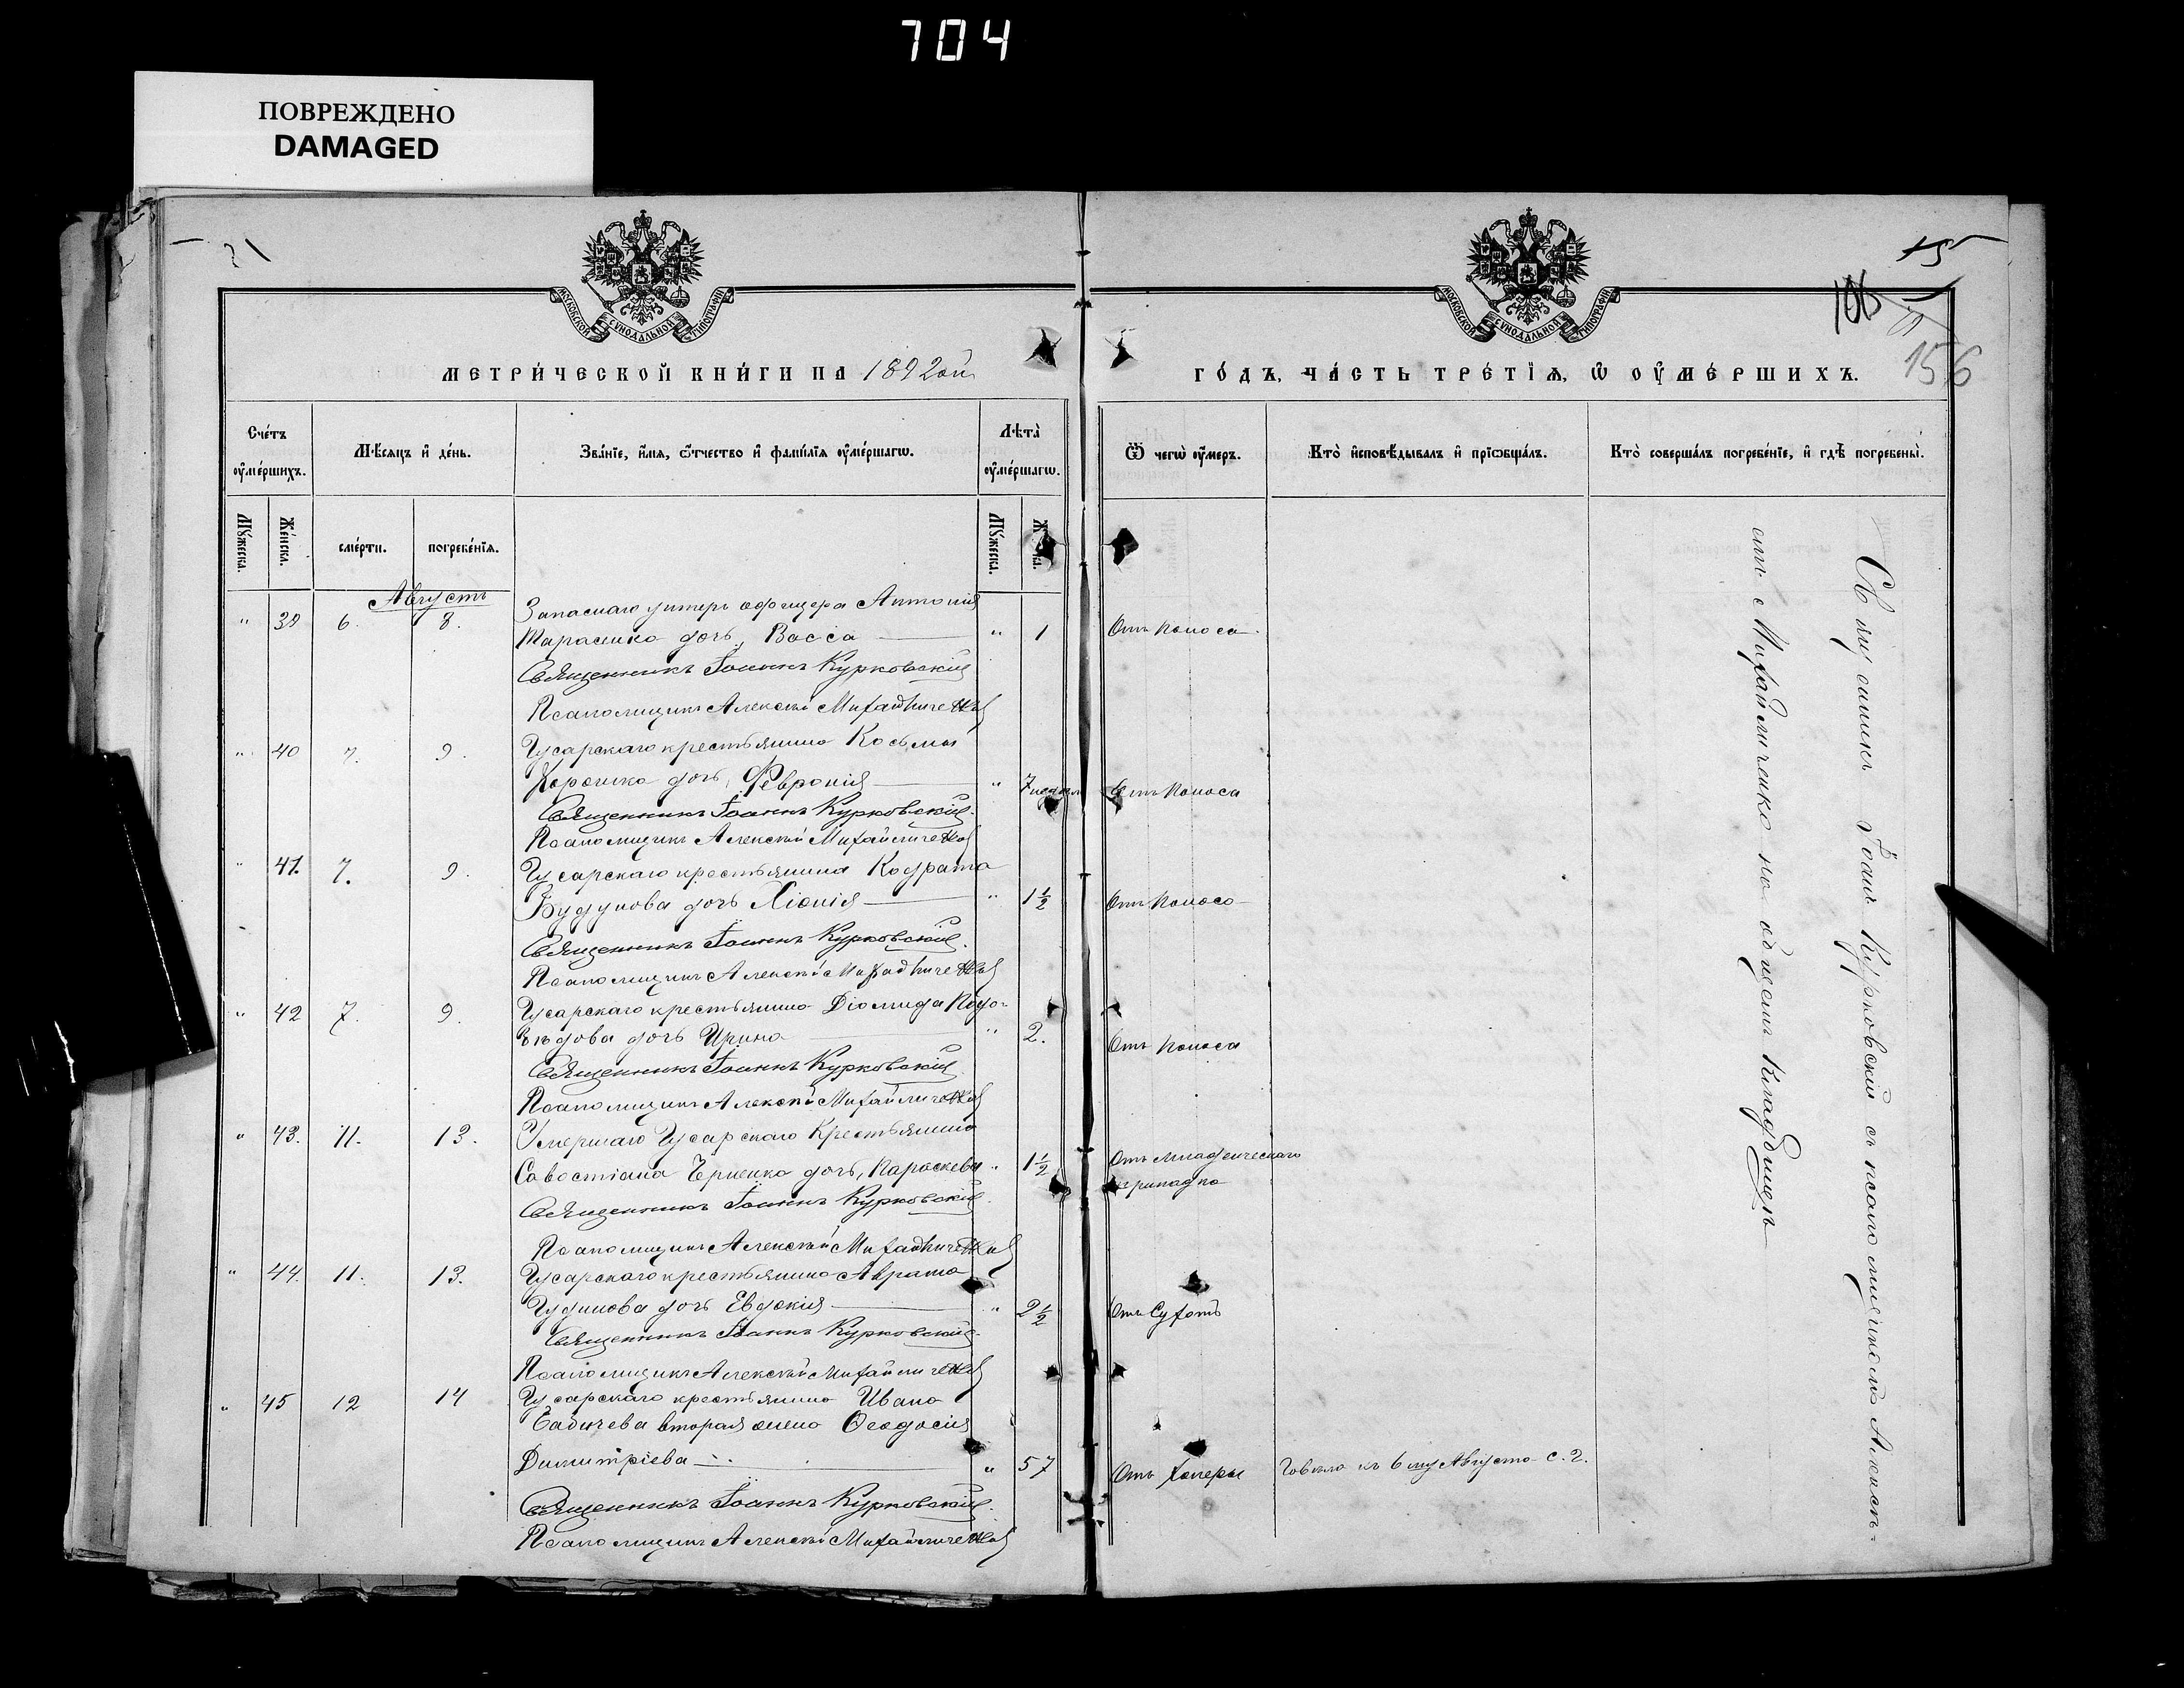 704
ПОВРЕЖДЕНО
DAMAGED
МОСКОВСКОЙ СѴНОДАЛЬНОЙ ТИПОГРАФІИ
МОСКОВСКОЙ СѴНОДАЛЬНОЙ ТИПОГРАФІИ
156
МЕТРИ́ЧЕСКОЙ КНИ́ГИ НА 1892ой
ГО́ДЪ, ЧА́СТЬ ТРЕ́ТІѦ, Ѡ҆ ОУ҆МЕ́РШИХЪ.
Сче́тъ оу҆ме́ршихъ.
Мѣ́сѧцъ и҆ де́нь.
Зва́нїе, и҆́мѧ, ѻ҆́тчество и҆ фами́лїѧ оу҆ме́ршагѡ.
Лѣта̀ оу҆ме́ршагѡ.
Ѿ чегѡ̀ оу҆́меръ.
Кто̀ и҆сповѣ́дывалъ и҆ прїѡбща́лъ.
Кто̀ соверша́лъ погребе́нїе, и҆ гдѣ̀ погребены̀.
Мꙋ́жеска.
Же́нска.
сме́рти.
погребе́нїѧ.
Мꙋ́жеска.
Августъ
" 39 6. 8. Запаснаго унтеръ офицера Антонія
Тарасенко дочь, Васса " 1 Отъ поноса
Священникъ Іоаннъ Курковскій
Псаломщикъ Алексѣй Михайличенко
" 40 7. 9. Гусарскаго крестьянина Косьмы
дочь, Февронія " 7 недѣль Отъ поноса
Священникъ Іоаннъ Курковскій
Псаломщикъ Алексѣй Михайличенко
" 41. 7. 9. Гусарскаго крестьянина Кодрата
дочь Хіонія " 1½ Отъ поноса
Священникъ Іоаннъ Курковскій
Псаломщикъ Алексѣй Михайличенко
" 42 7. 9. Гусарскаго крестьянина Діомида
дочь Ирина " 2. Отъ поноса
Священникъ Іоаннъ Курковскій
Псаломщикъ Алексѣй Михайличенко
" 43. 11. 13. Умершаго Гусарскаго Крестьянина
Савостіана дочь, Параскева " 1½ Отъ младенческаго
припадка
Священникъ Іоаннъ Курковскій
Псаломщикъ Алексѣй Михайличенко
" 44. 11. 13. Гусарскаго крестьянина Аврама
дочь Евдокія " 2½ Отъ Сухотъ
Священникъ Іоаннъ Курковскій
Псаломщикъ Алексѣй Михайличенко
" 45 12 14 Гусарскаго крестьянина Ивана
вторая жена Ѳеодосія
Димитріева " 57 Отъ холеры Говѣла къ 6му Августа с. г.
Священникъ Іоаннъ Курковскій
Псаломщикъ Алексѣй Михайличенко
Священникъ Іоаннъ Курковскій съ псаломщикомъ Алексѣ-
емъ Михайличенко на общемъ Кладбищѣ